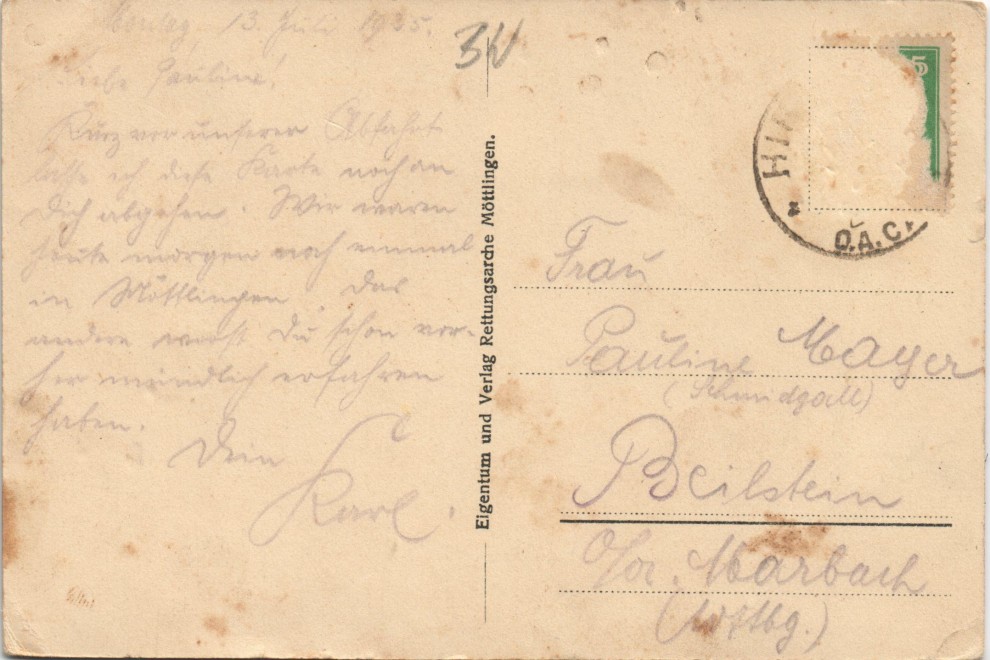 Montag, 13. Juli 1935.
Liebe Pauline!
Kurz vor unserer Abfahrt
lasse ich diese Karte noch an
Dich abgehen. Wir waren
heute morgen noch einmal
in Möttlingen. Das
andere wirst Du schon vor-
her mündlich erfahren
haben.
Dein
Karl.
Eigentum und Verlag Rettungsarche Möttlingen.
5
HI
O.A.C
Frau
Pauline Mayer
Beilstein
O/A. Marbach
(Wttbg.)